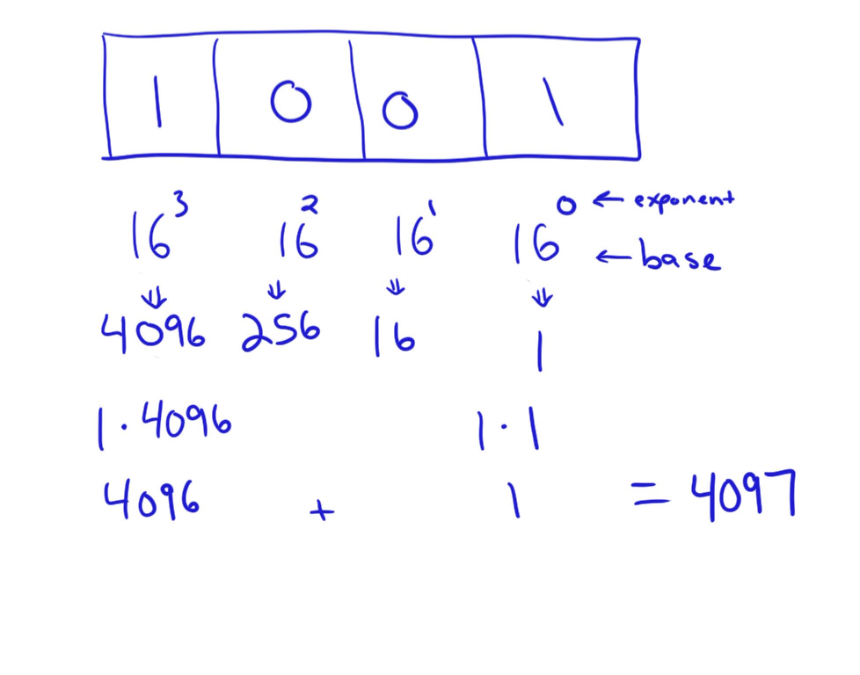 1 0 0 1
16³ 16² 16¹ 16⁰ ← exponent
← base
↓ ↓ ↓ ↓
4096 256 16 1
1 · 4096 1 · 1
4096 + 1 = 4097